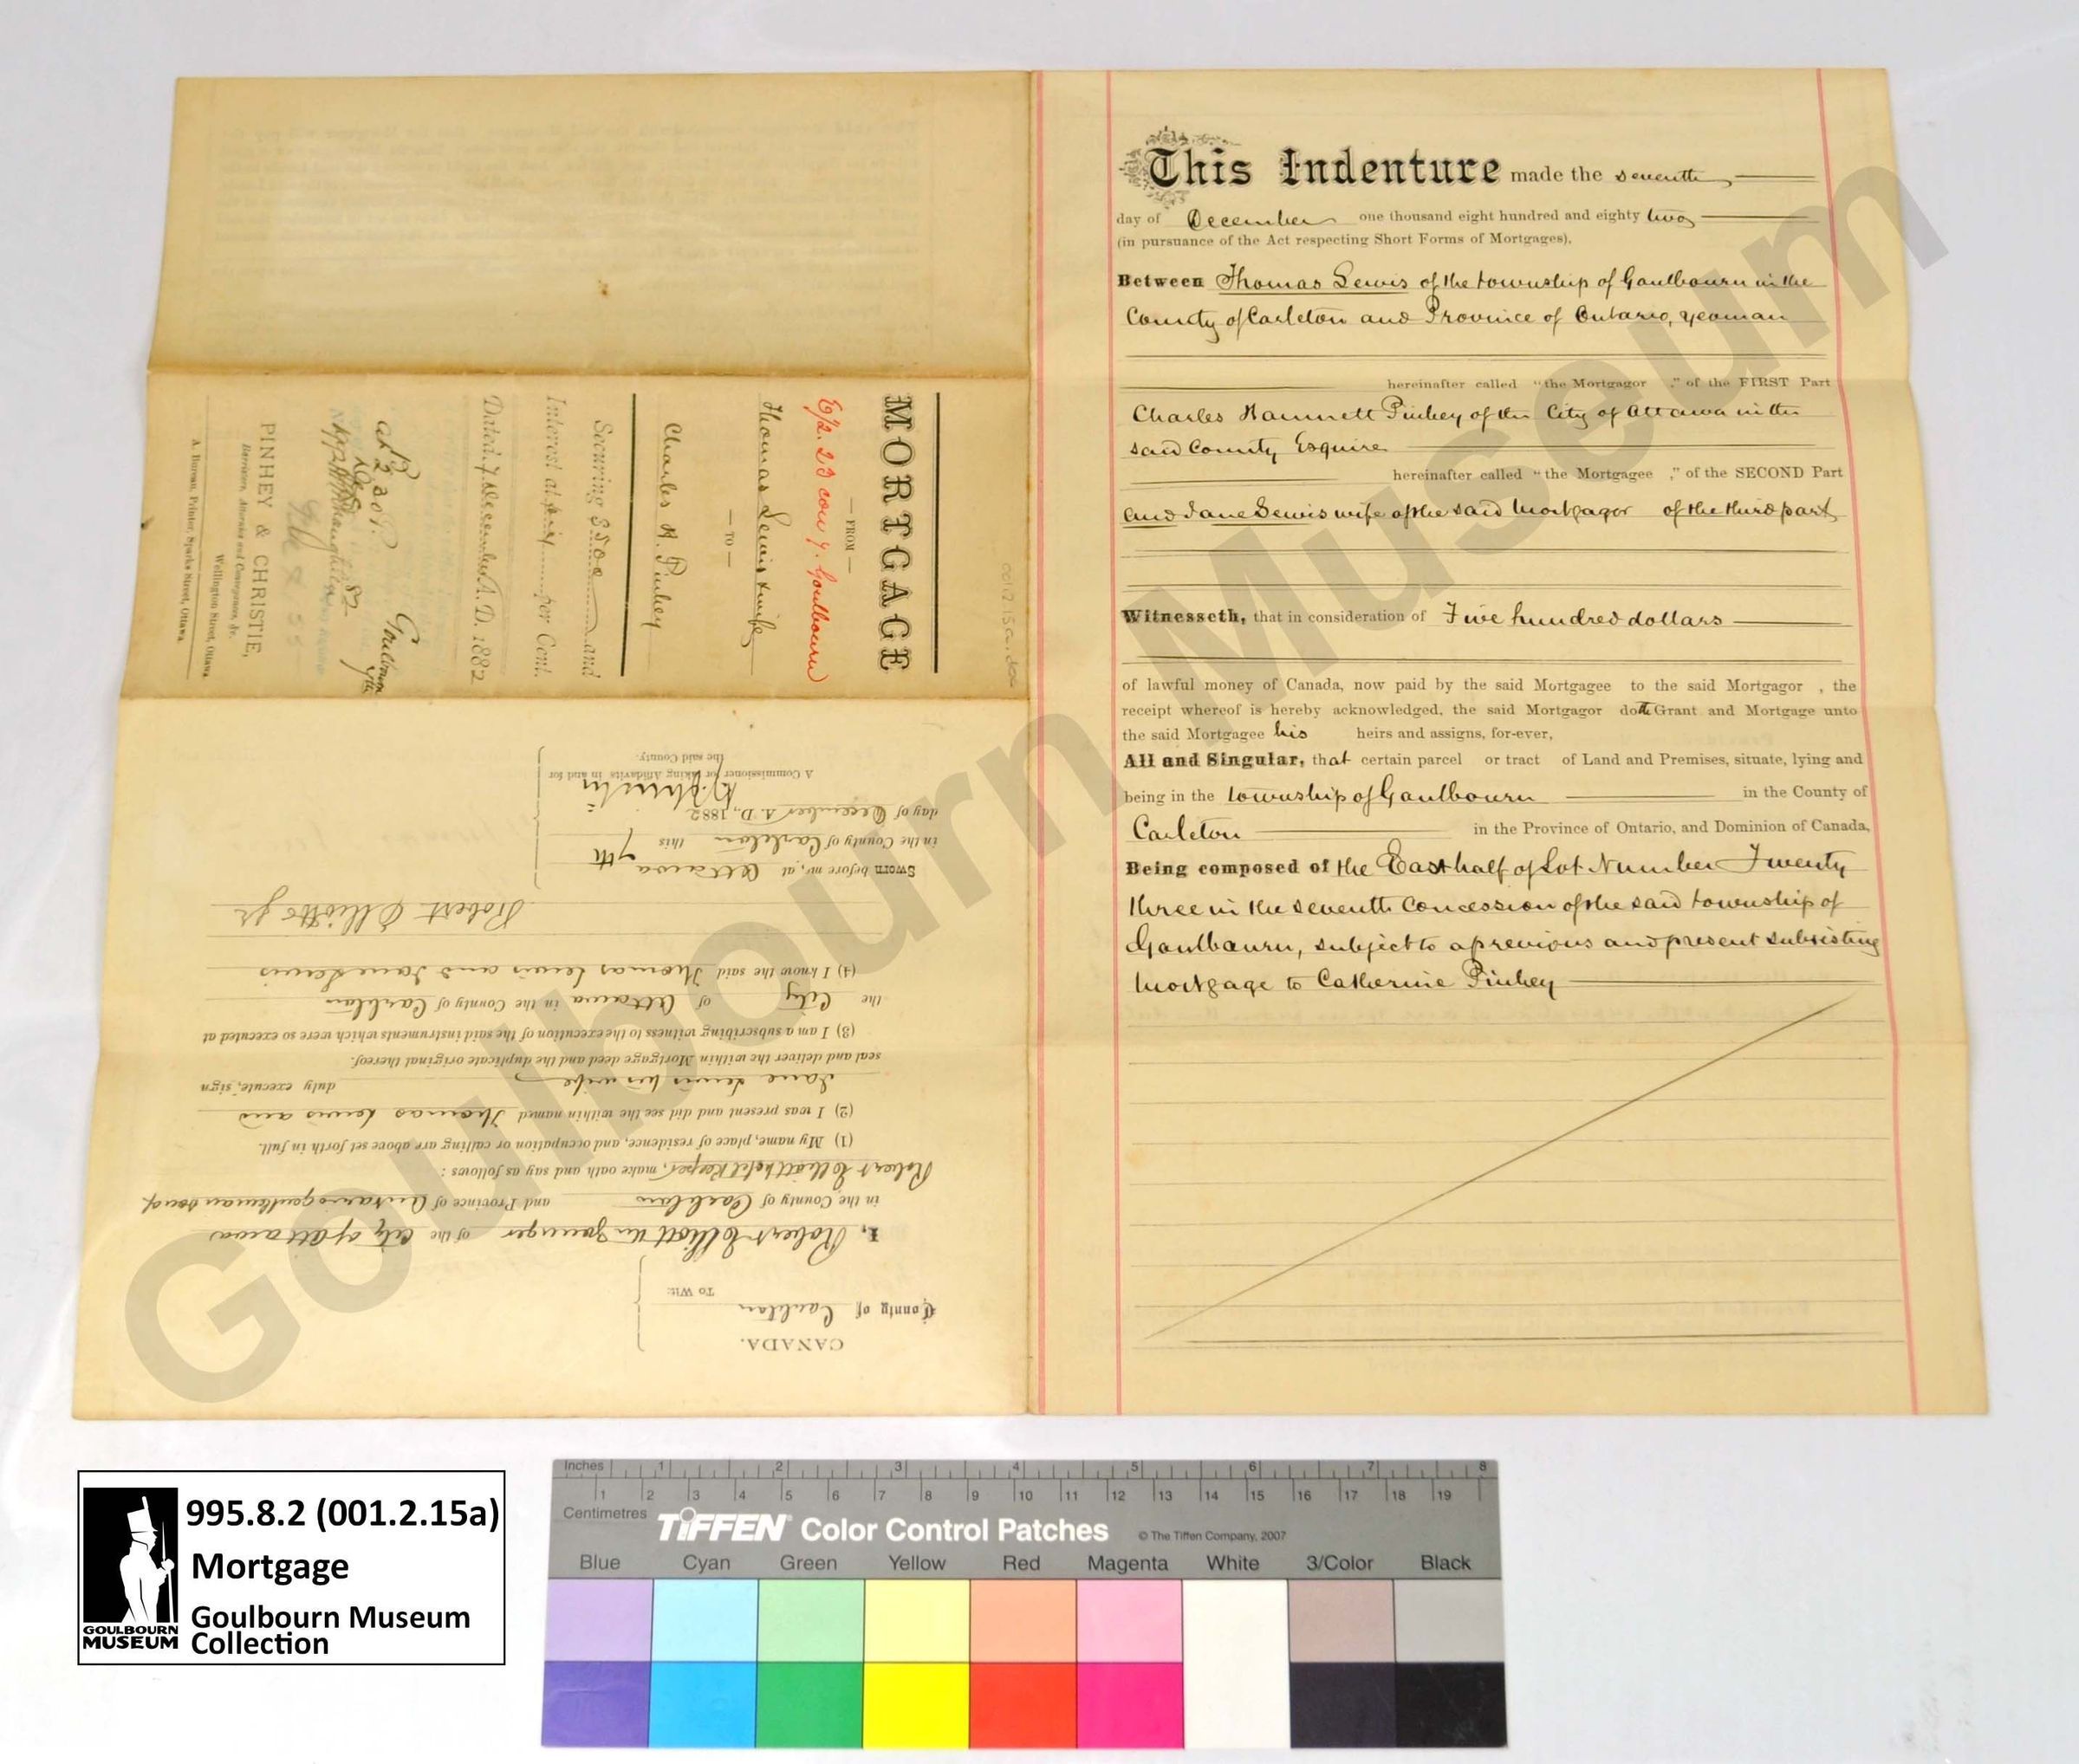 This Indenture made the seventh
day of December one thousand eight hundred and eighty two
(in pursuance of the Act respecting Short Forms of Mortgages),
Between Thomas Lewis of the township of Goulbourn in the
County of Carleton and Province of Ontario, yeoman
hereinafter called "the Mortgagor ," of the FIRST Part
Charles Hamnett Pinhey of the City of Ottawa in the
said County Esquire
hereinafter called "the Mortgagee ," of the SECOND Part
and Jane Lewis wife of the said Mortgagor of the third part
Witnesseth, that in consideration of Five hundred dollars
of lawful money of Canada, now paid by the said Mortgagee to the said Mortgagor , the
receipt whereof is hereby acknowledged, the said Mortgagor doth Grant and Mortgage unto
the said Mortgagee his heirs and assigns, for-ever,
All and Singular, that certain parcel or tract of Land and Premises, situate, lying and
being in the township of Goulbourn in the County of
Carleton in the Province of Ontario, and Dominion of Canada,
Being composed of the East half of Lot Number Twenty
three in the seventh Concession of the said township of
Goulbourn, subject to a previous and present subsisting
mortgage to Catherine Pinhey
MORTGAGE
— FROM —
E/2. 23 con 7. Goulbourn
Thomas Lewis & wife
— TO —
Charles H. Pinhey
Securing $500 and
Interest at per Cent.
Dated 7 December A. D. 1882
Goulbourn
PINHEY & CHRISTIE,
Barristers, Attorneys and Conveyancers, &c.
Wellington Street, Ottawa
A. Bureau, Printer, Sparks Street, Ottawa.
CANADA.
County of Carleton
To Wit:
I, Robert Elliott the younger of the City of Ottawa
in the County of Carleton and Province of Ontario gentleman son of
Robert Elliott hotel keeper, make oath and say as follows :
(1) My name, place of residence, and occupation or calling are above set forth in full.
(2) I was present and did see the within named Thomas Lewis and
Jane Lewis his wife duly execute, sign
seal and deliver the within Mortgage deed and the duplicate original thereof.
(3) I am a subscribing witness to the execution of the said instruments which were so executed at
the City of Ottawa in the County of Carleton
(4) I know the said Thomas Lewis and Jane Lewis
Robert Elliott jr
Sworn before me, at Ottawa
in the County of Carleton this 7th
day of December A. D., 1882
A Commissioner for taking Affidavits in and for
the said County.
Goulbourn Museum
995.8.2 (001.2.15a)
Mortgage
Goulbourn Museum
Collection
GOULBOURN
MUSEUM
Inches 1 2 3 4 5 6 7 8
1 2 3 4 5 6 7 8 9 10 11 12 13 14 15 16 17 18 19
Centimetres
TIFFEN Color Control Patches © The Tiffen Company, 2007
Blue Cyan Green Yellow Red Magenta White 3/Color Black